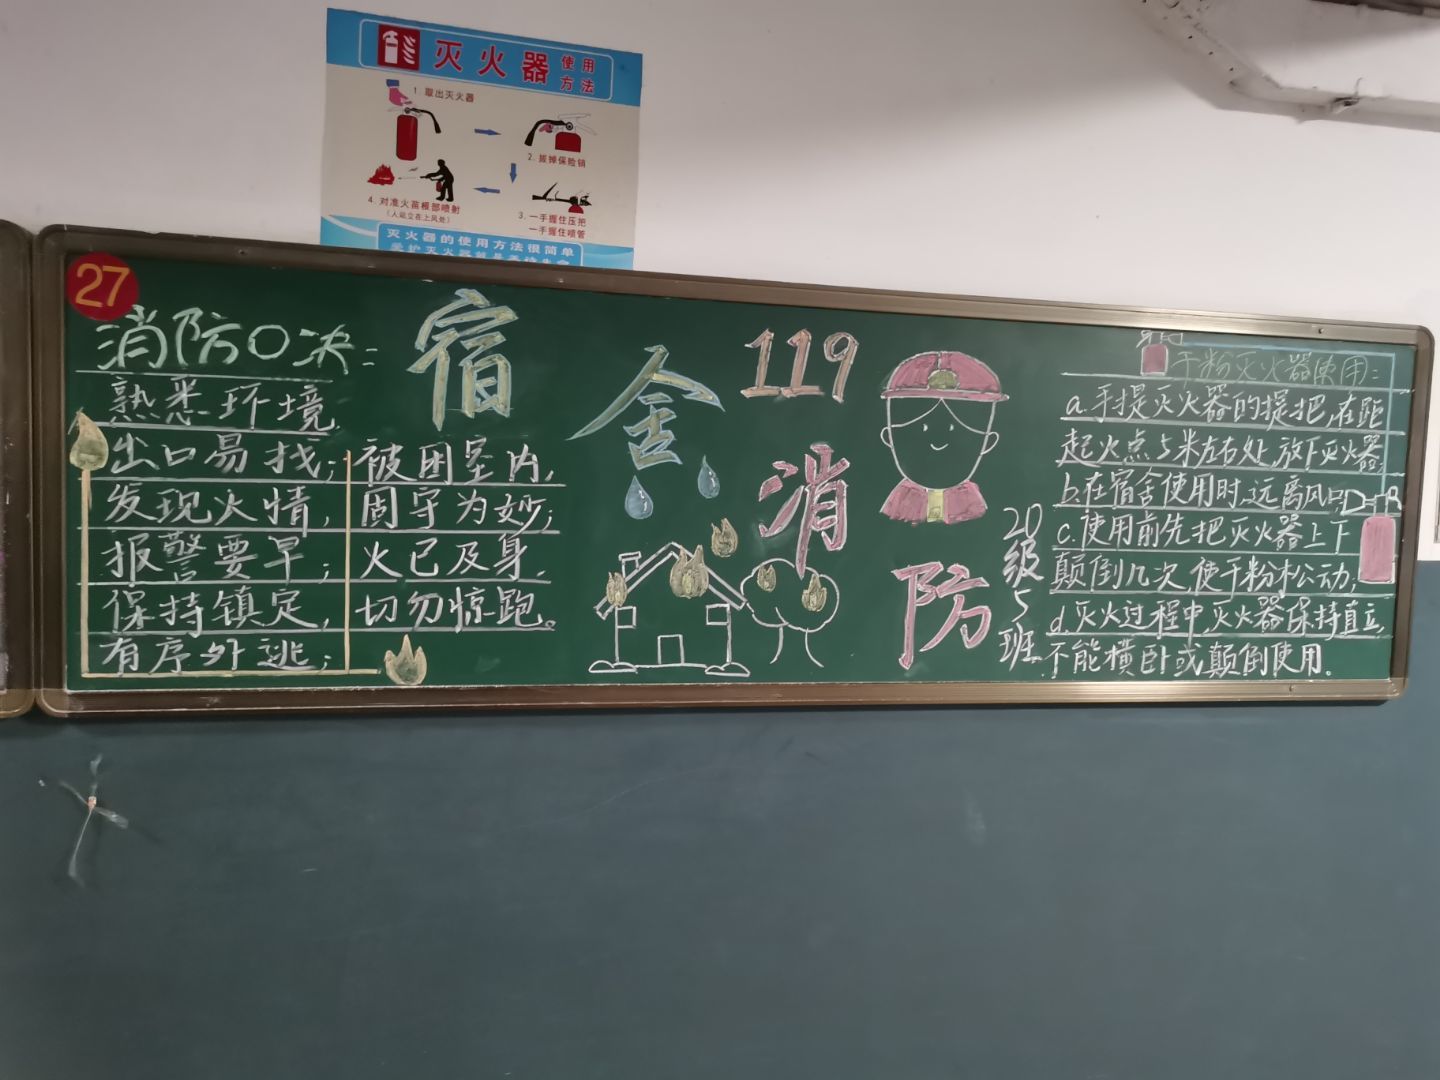 灭火器
使用
方法
1. 取出灭火器
2. 拔掉保险销
4. 对准火苗根部喷射
(人站立在上风处)
3. 一手握住压把
一手握住喷管
灭火器的使用方法很简单
27
消防口决:
熟悉环境,
出口易找;
发现火情,
报警要早;
保持镇定,
有序外逃;
被困室内,
固守为妙;
火已及身,
切勿惊跑。
宿舍
119
消防
20级5班
干粉灭火器使用:
a.手提灭火器的提把,在距
起火点5米左右处,放下灭火器;
b.在宿舍使用时,远离风口;
c.使用前先把灭火器上下
颠倒几次,使干粉松动;
d.灭火过程中,灭火器保持直立,
不能横卧或颠倒使用。